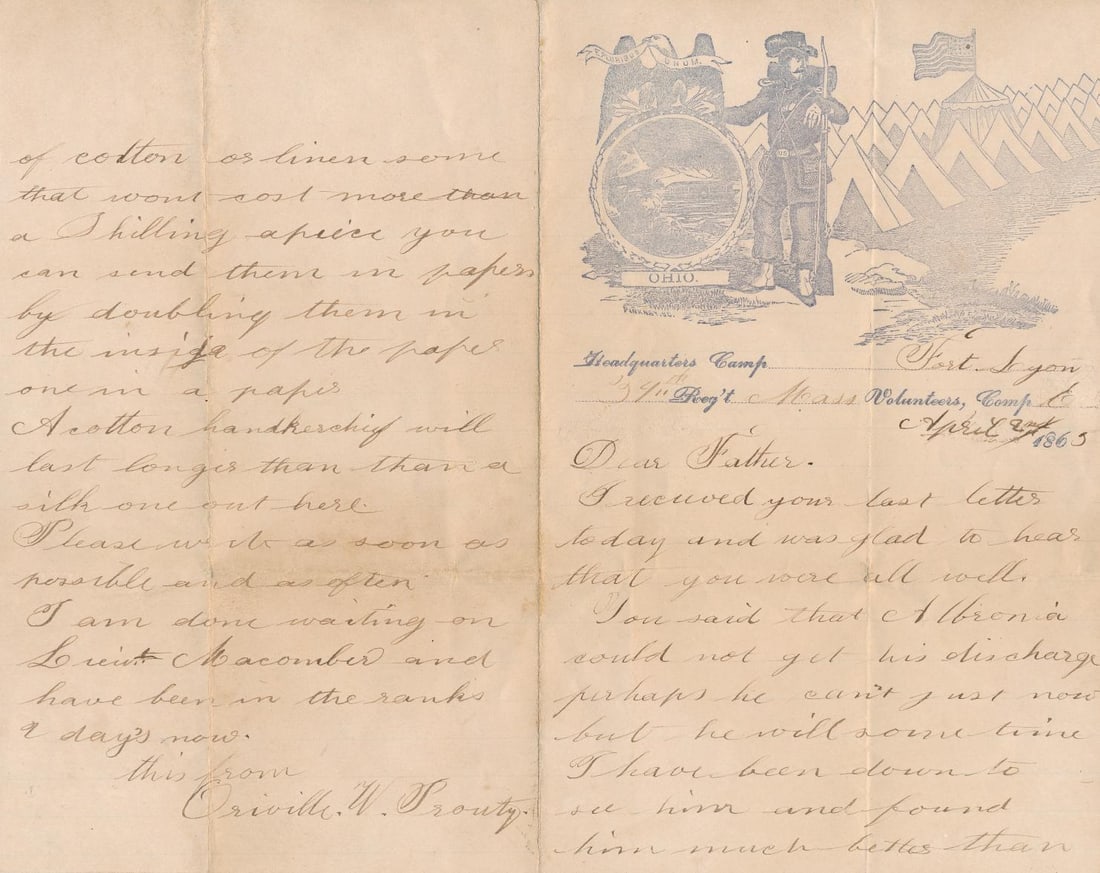 of cotton or linen some
that wont cost more than
a Shilling apiece you
can send them in papers
by doubling them in
the inside of the paper
one in a paper
A cotton handkerchif will
last longer than than a
silk one out here.
Please write as soon as
possible and as often
I am done waiting on
Lieut Macomber and
have been in the ranks
2 day's now.
this from
Oriville. W. Prouty.
E PLURIBUS UNUM.
OHIO.
Headquarters Camp Fort Lyon
34th Reg't Mass Volunteers, Comp E
April 2nd 1863
Dear Father.
I receuved your last letter
today and was glad to hear
that you were all well.
You said that Albronia
could not get his discharge
perhaps he can't just now
but he will some time
I have been down to
see him and found
him much better than